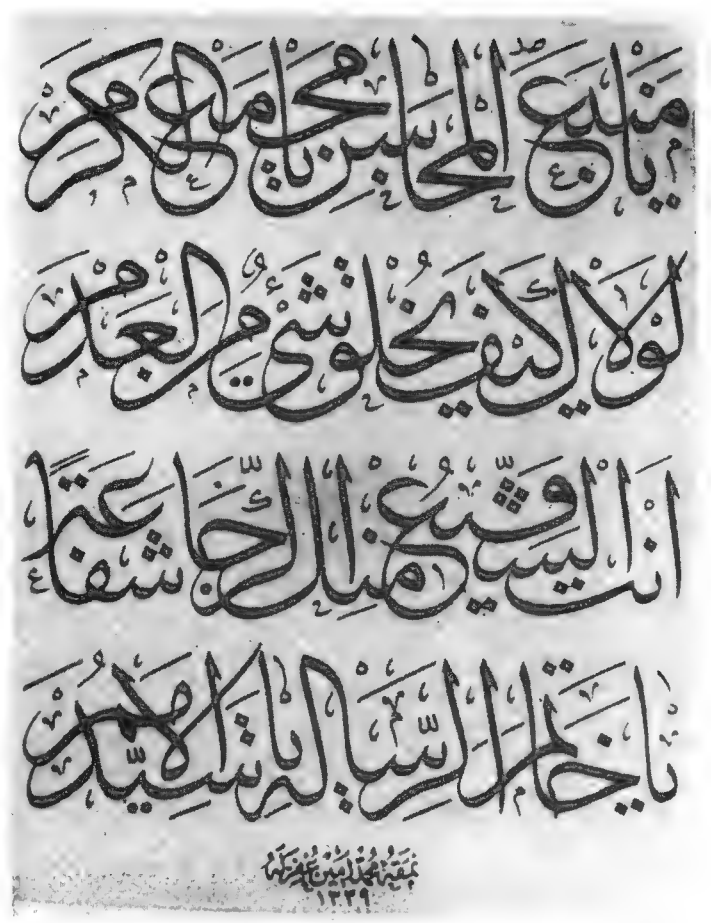 يا منبع المحاسن يا مجمع الكرم
لولاك كيف يخلق شئ من العدم
انت الشفيع الرجا شفاعة
يا خاتم الرسالة يا سيد الامم
نمقه محمد امين غفر له